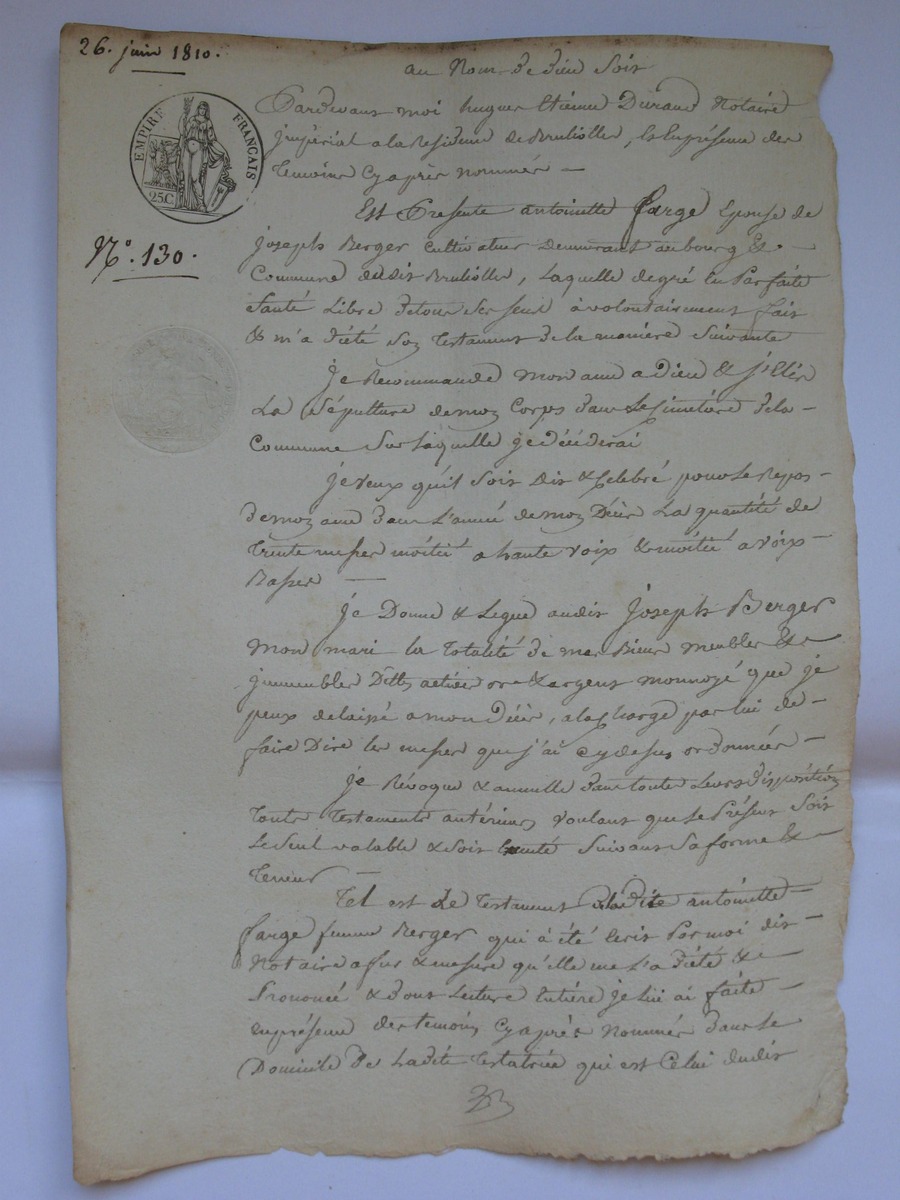 26. juin 1810.
au Nom de dieu Soit
EMPIRE FRANÇAIS
25C.
Pardevant moi hugues Etienne Durand Notaire
jmpérial a la Residence de Brulliolles, & En présence des
Temoins Cyaprès nommés —
Est Presente antoinette farge Epouse de
N.º 130.
joseph Berger cultivateur demeurant au bourg & -
Commune dudit Brulliolles, Laquelle de gré En Parfaite
Santé Libre de tous Ses Sens à volontairement fait
& m'a dicté Son Testament de la maniere Suivante
je Recommande Mon ame a Dieu & j'Elis
La Sépulture de mon Corps dans Le Cimetière de la -
Commune Sur Laquelle je décéderai
je veux qu'il Soit Dit & Celebré pour Le Repos -
de mon ame dans L'année de mon Décès La quantité de
Trente messes moitié a haute voix & moitié a voix -
Basse —
je Donne & Legue audit joseph Berger
mon mari la Totalité de mes Biens meubles & -
jmmeubles Dettes actives or & argent monnoyé que je
peux delaissé a mon décès, a la charge par lui de -
faire Dire les messes que j'ai cy dessus ordonnées -
je Révoque & annulle dans toute Leurs dispositions
Touts Testaments antérieurs voulant que Le Présent Soit
Le Seul valable & Soit Suivant Sa forme & -
Teneur —
Tel est Le Testament de ladite antoinette -
farge femme Berger qui à été Ecrit Par moi dit -
Notaire a fur & mesure qu'elle me L'a dicté & -
Prononcé & dont Lecture Entière je Lui ai faite -
en présence des temoins Cyaprès Nommés dans Le
Domicile De Ladite Testatrice qui est Celui dudit